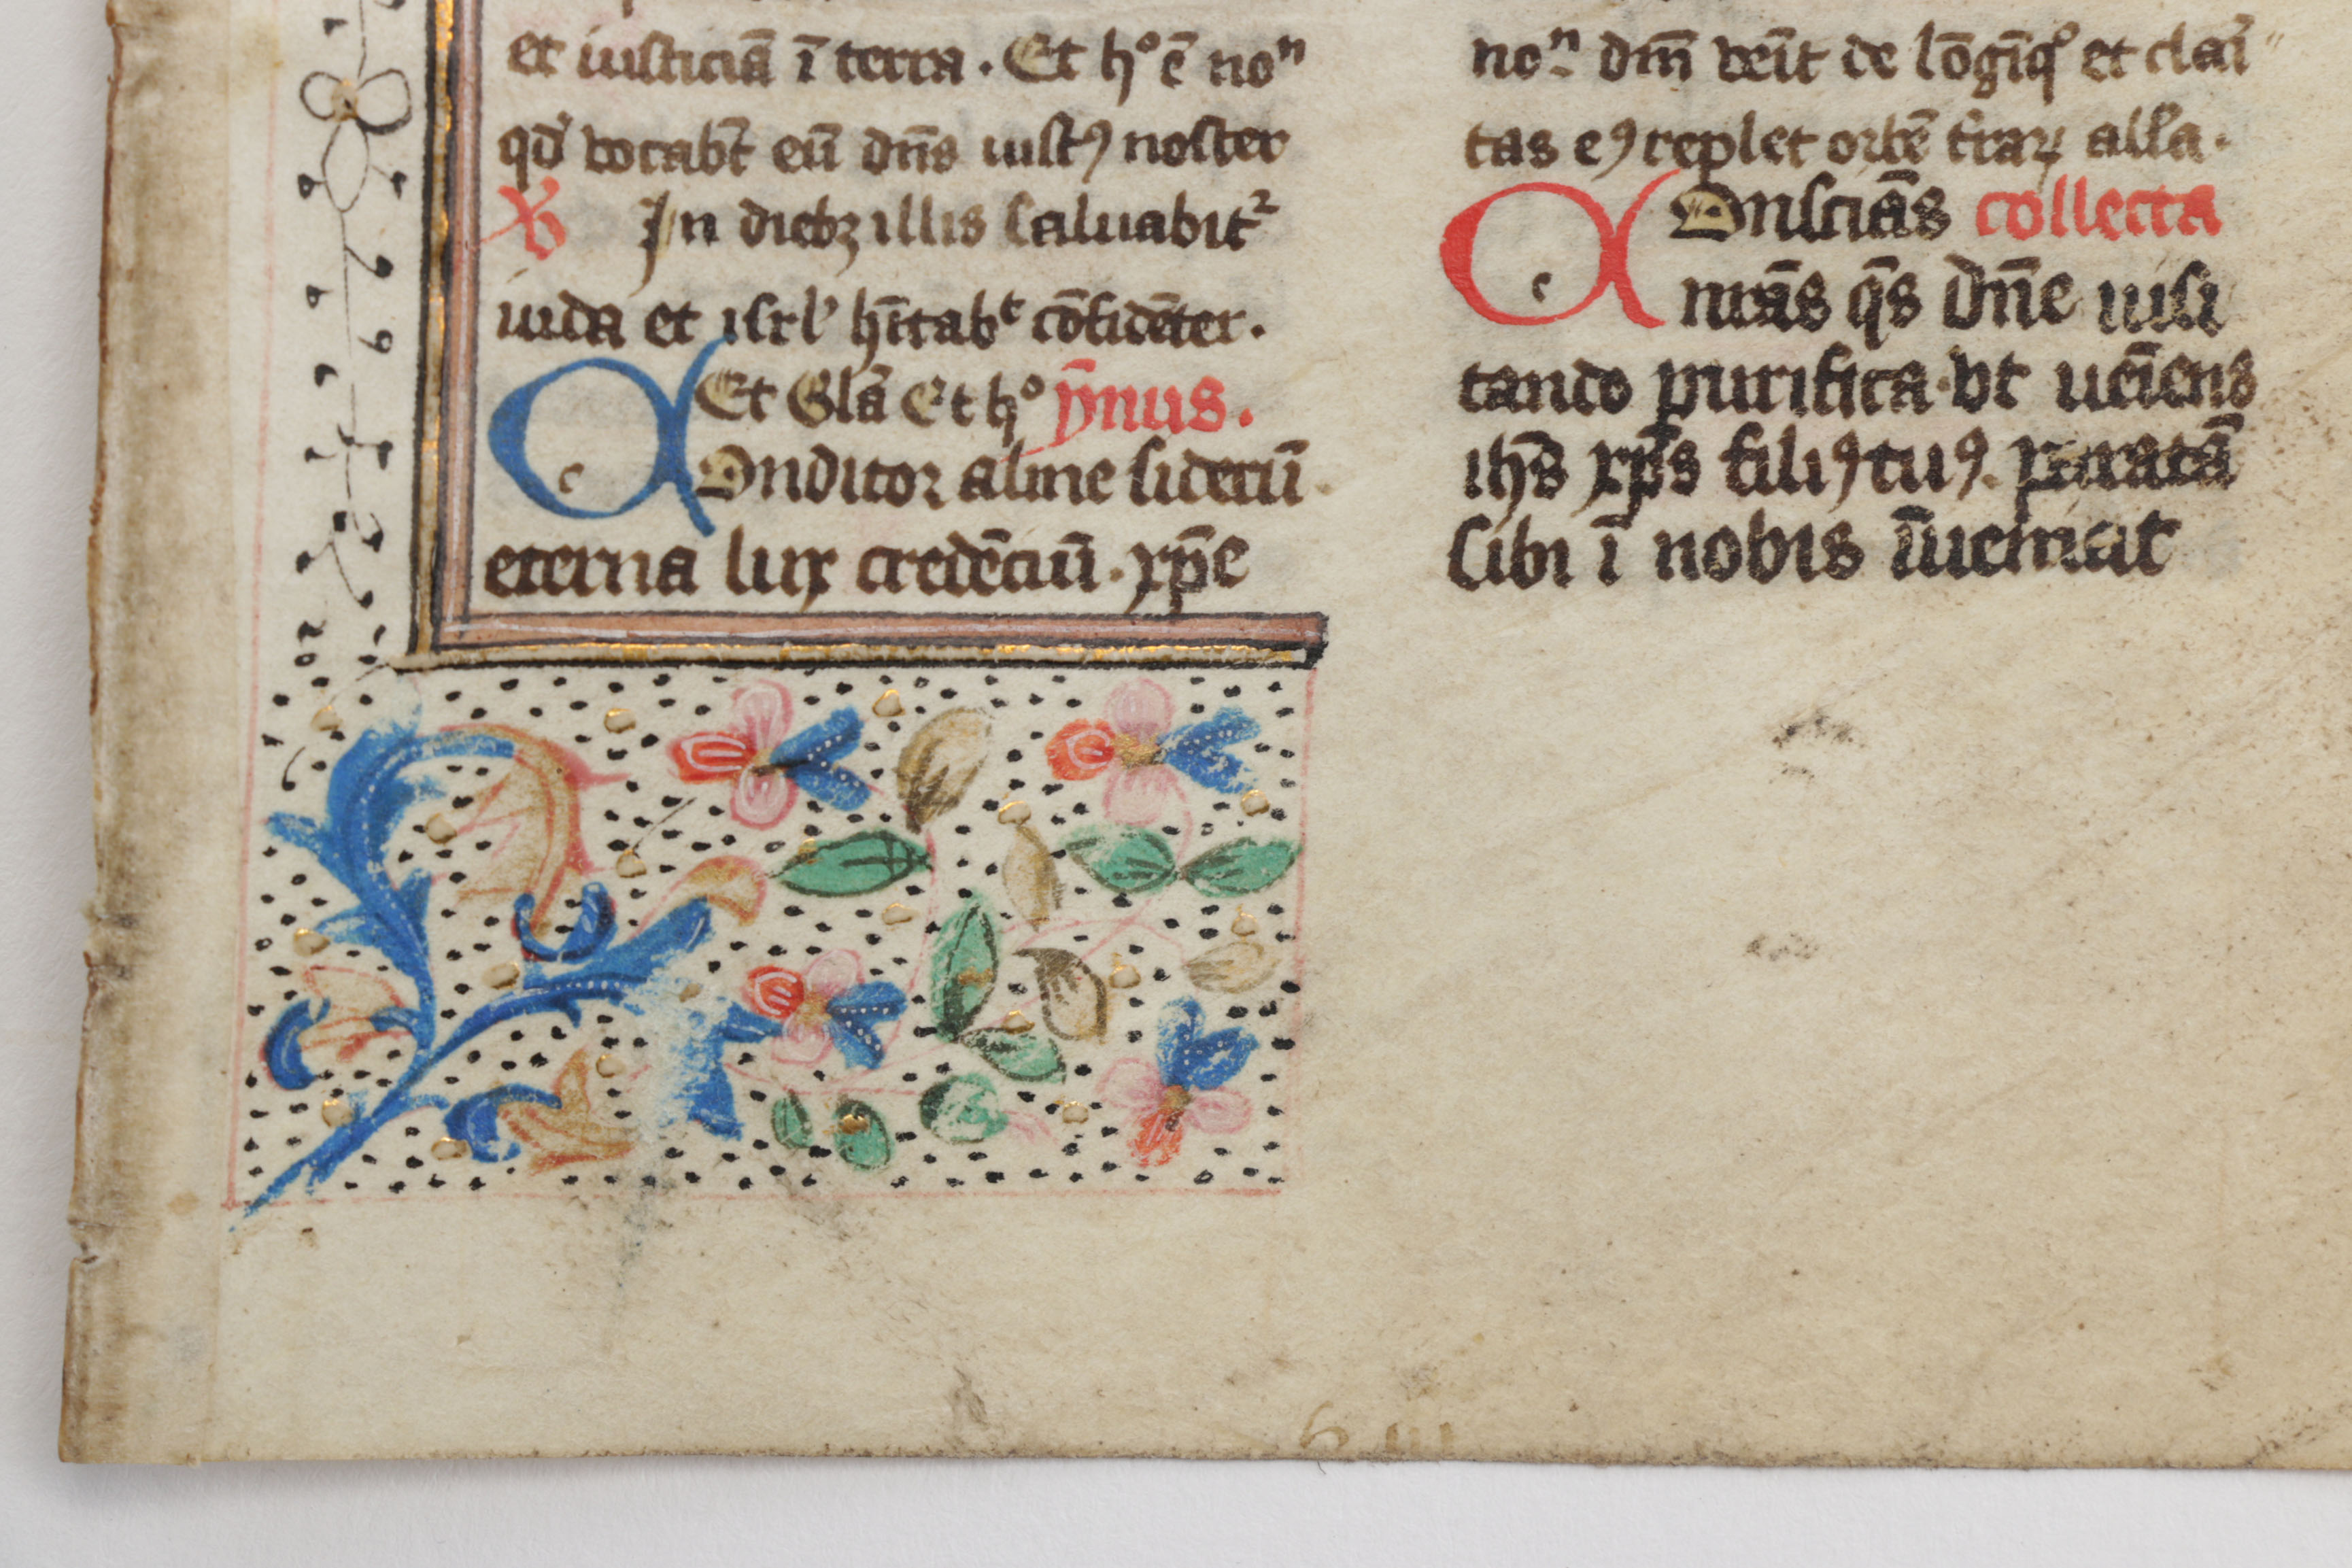 et iusticiā ī terra . Et hº ē noⁿ
qd' vocabt̄ eū dn̄s iustꝰ noster
In diebꝫ illis saluabit²
iuda et isrl' hītabᵗ cōfidēter .
Et Glā Et hº ȳmnus .
c Onditor alme siderū
eterna lux credēciū . xp̄e
noⁿ dm̄ veīt de lōgīqº et clai
tas eꝰ replet orbē t̄raꝝ all'a .
c Onsciās collecta
nr̄ās q̄s dn̄e uisi
tando purifica . vt ueīens
ih̄s xp̄s filiꝰ tuꝰ . paratā
sibi ī nobis īueniat